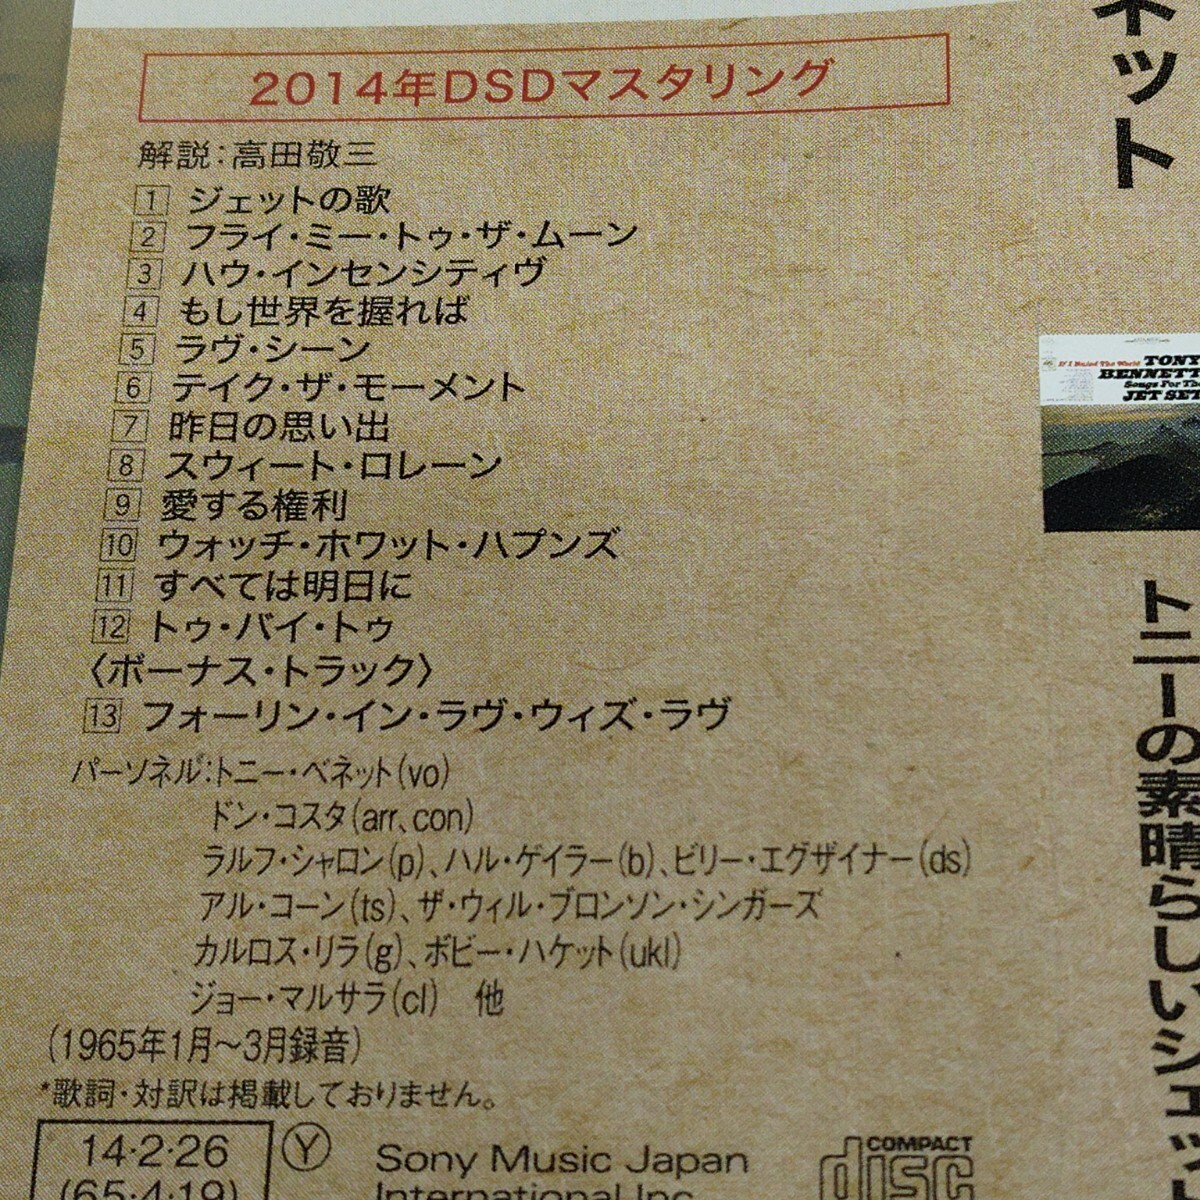 2014年DSDマスタリング
解説:高田敬三
1 ジェットの歌
2 フライ・ミー・トゥ・ザ・ムーン
3 ハウ・インセンシティヴ
4 もし世界を握れば
5 ラヴ・シーン
6 テイク・ザ・モーメント
7 昨日の思い出
8 スウィート・ロレーン
9 愛する権利
10 ウォッチ・ホワット・ハプンズ
11 すべては明日に
12 トゥ・バイ・トゥ
〈ボーナス・トラック〉
13 フォーリン・イン・ラヴ・ウィズ・ラヴ
パーソネル:トニー・ベネット(vo)
ドン・コスタ(arr、con)
ラルフ・シャロン(p)、ハル・ゲイラー(b)、ビリー・エグザイナー(ds)
アル・コーン(ts)、ザ・ウィル・ブロンソン・シンガーズ
カルロス・リラ(g)、ボビー・ハケット(ukl)
ジョー・マルサラ(cl) 他
(1965年1月〜3月録音)
*歌詞・対訳は掲載しておりません。
14・2・26
(65・4・19)
Ⓨ
Sony Music Japan
International Inc.
COMPACT
disc
ネット
If I Ruled The World
TONY
BENNETT
Songs For The
JET SET
トニーの素晴らしいジェット